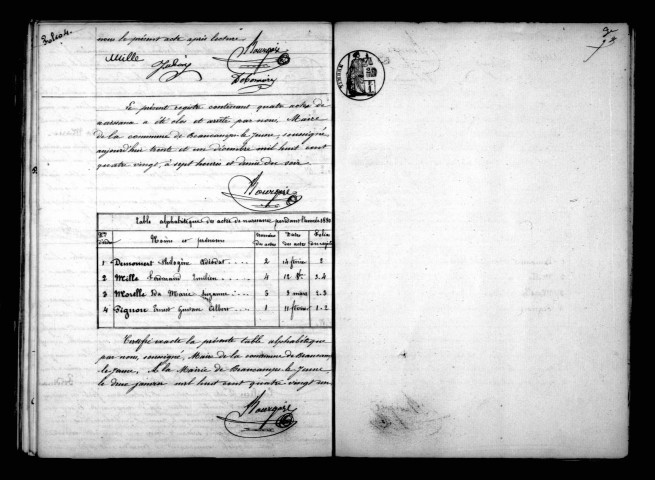 Folio 4.
nous le présent acte après lecture
Mille Bourgois
Le présent registre contenant quatre actes de
naissance a été clos et arrêté par nous Maire
de la commune de le Jeune, soussigné
aujourd'hui trente et un décembre mil huit cent
quatre vingt, à sept heures et demie du soir.
Bourgois
Table alphabétique des actes de naissance pendant l'année 1880
Nos d'ordre Noms et prénoms Numéros des actes Dates des actes Folios du registre
1 Demomert Adéodat 2 14 février 2
2 Mille Ferdinand Emilien 4 12 Xbre 3.4
3 Morelle Ida Marie Suzanne 3 3 mars 2.3
4 Pignon Ernest Gustave Albert 1 11 février 1-2
Certifié exacte la présente table alphabétique
par nous, soussigné, Maire de la commune de
le Jeune. A la Mairie de le Jeune
le deux janvier mil huit cent quatre vingt un
Bourgois